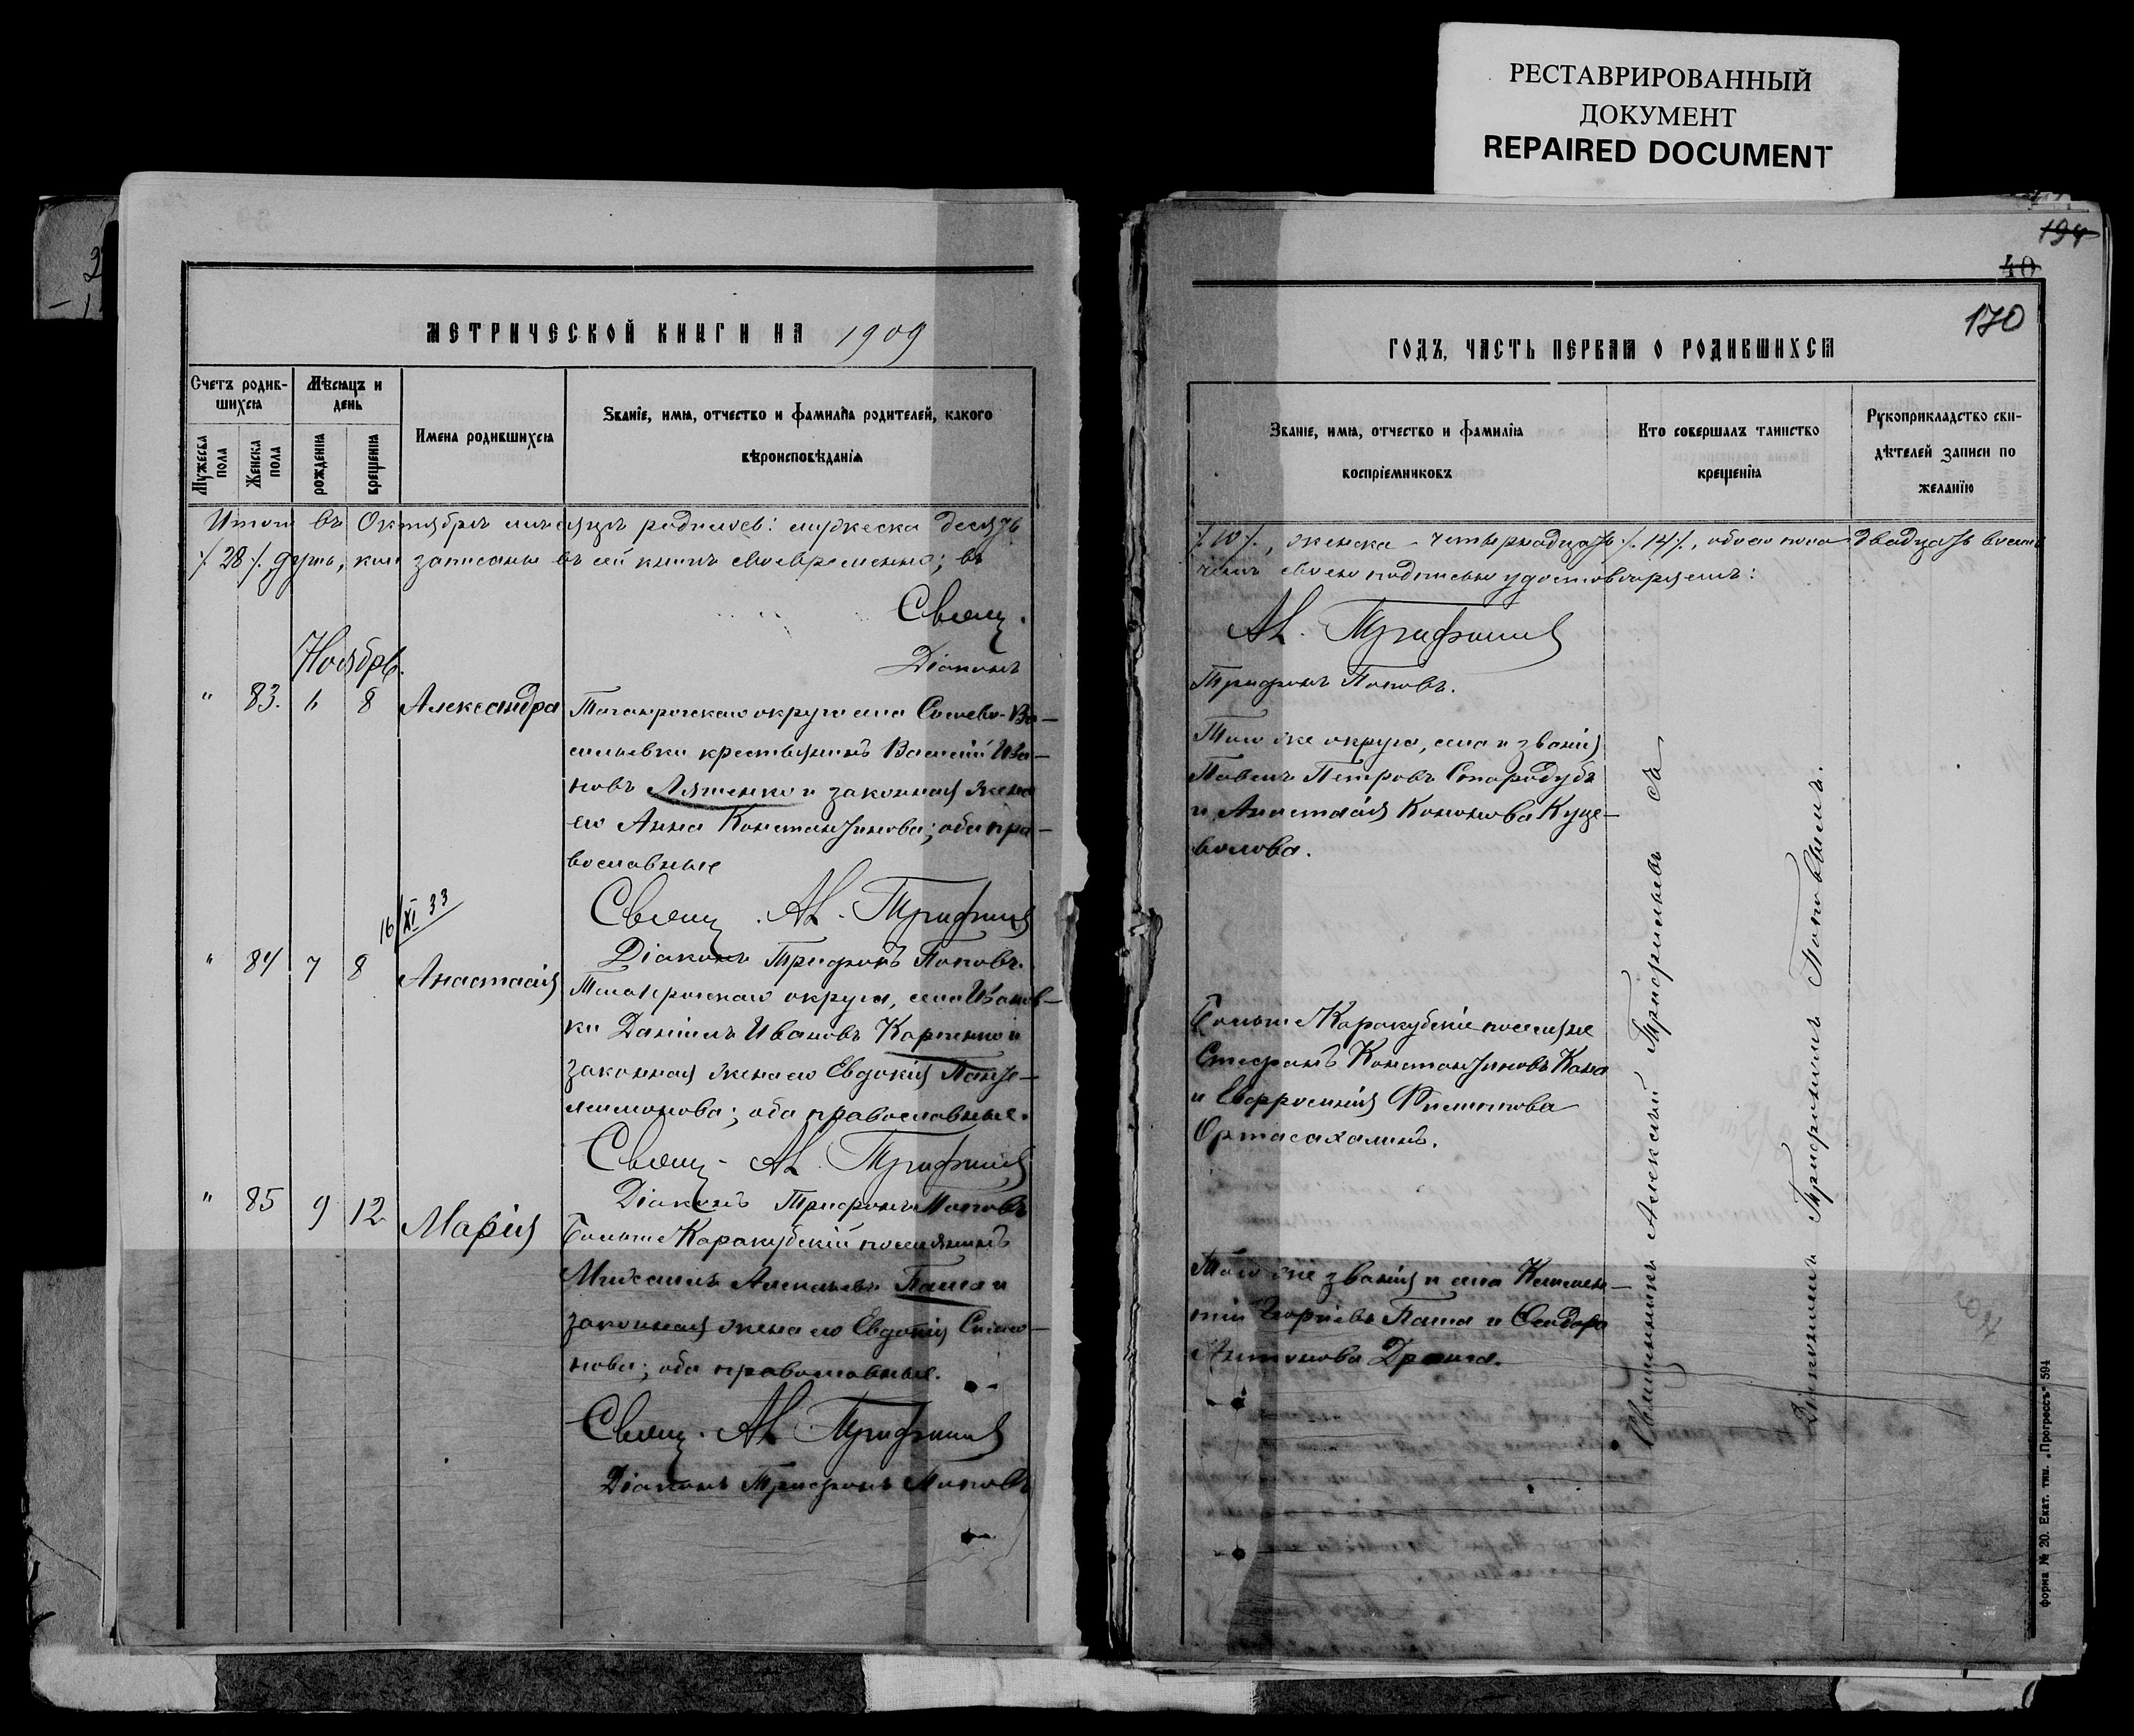 РЕСТАВРИРОВАННЫЙ
ДОКУМЕНТ
REPAIRED DOCUMENT
МЕТРИЧЕСКОЙ КНИГИ НА 1909
Счетъ родив-
шихся
Мѣсяцъ и
день
Мужеска
пола
Женска
пола
рожденія
крещенія
Имена родившихся
Званіе, имя, отчество и фамилія родителей, какого
вѣроисповѣданія
Итого въ Октябрѣ мѣсяцѣ родилось: мужеска десять
/.28./ душъ, кои записаны въ сей книгѣ своевременно; въ
Свящ.
Діаконъ
Ноябрь.
" 83. 6 8 Александра
Таганрогскаго округа села Ва-
сильевки крестьянинъ Василій Ива-
новъ Ляшенко и законная жена
его Анна Константинова; оба пра-
вославные
Свящ. Ал. Трифильев
Діаконъ Трифонъ Поповъ.
16/XI 33
" 84 7 8 Анастасія
Таганрогскаго округа, села Иванов-
ки Даніилъ Ивановъ Карпенко и
законная жена его Евдокія Панте-
леимонова; оба православные.
Свящ. Ал. Трифильев
Діаконъ Трифонъ Поповъ
" 85 9 12 Марія
Больше Каракубскій поселянинъ
Михаилъ Паша и
законная жена его Евдокія Симео-
нова; оба православные.
Свящ. Ал. Трифильев
Діаконъ Трифонъ Поповъ
194
40
170
ГОДЪ, ЧАСТЬ ПЕРВАЯ О РОДИВШИХСЯ
Званіе, имя, отчество и фамилія
воспріемниковъ
Кто совершалъ таинство
крещенія
Рукоприкладство сви-
дѣтелей записи по
желанію
/.10/., женска - четырнадцать /.14/., обоего пола двадцать восемь
чемъ своею подписью удостовѣряемъ:
Ал. Трифильев
Трифонъ Поповъ.
Того же округа, села и званія
Павелъ Петровъ Стародубъ
и Анастасія Кононова Куце-
волова.
Больше Каракубскіе поселяне
Стефанъ Константиновъ Кана
и Евфросинія Филиппова
Ортасахалинъ.
Того же званія и села Климен-
тій Георгіевъ Паша и Феодора
Антонова
Священникъ Алексѣй Трифильевъ съ
Діакономъ Трифономъ Поповымъ.
Форма № 20. Екат. тип. „Прогрессъ" 594